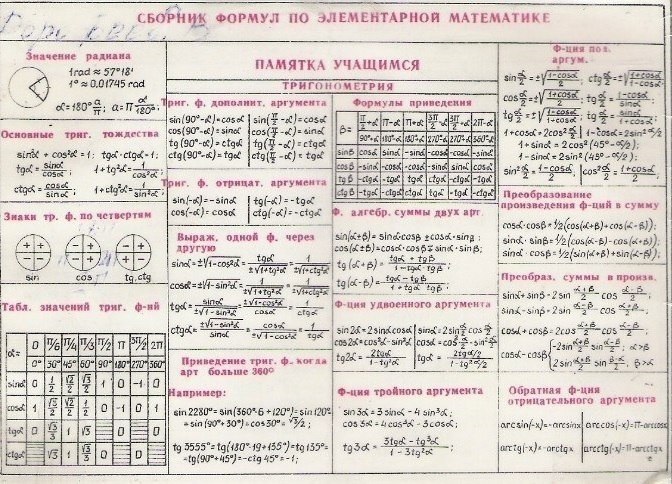 СБОРНИК ФОРМУЛ ПО ЭЛЕМЕНТАРНОЙ МАТЕМАТИКЕ
ПАМЯТКА УЧАЩИМСЯ
ТРИГОНОМЕТРИЯ
Значение радиана
1rad ≈ 57°18'
1° ≈ 0,01745 rad
α=180° a/π; a=π α/180°;
Основные триг. тождества
sin²α + cos²α = 1; tgα·ctgα=1;
tgα= sinα/cosα; 1+tg²α= 1/cos²α;
ctgα= cosα/sinα; 1+ctg²α= 1/sin²α;
Знаки тр. ф. по четвертям
sin cos tg, ctg
Табл. значений триг. ф-ний
α= 0 π/6 π/4 π/3 π/2 π 3π/2 2π
0° 30° 45° 60° 90° 180° 270° 360°
sinα 0 1/2 √2/2 √3/2 1 0 -1 0
cosα 1 √3/2 √2/2 1/2 0 -1 0 1
tgα 0 √3/3 1 √3 0 0
ctgα √3 1 √3/3 0 0
Триг. ф. дополнит. аргумента
sin(90°-α)=cosα sin(π/2-α)=cosα
cos(90°-α)=sinα cos(π/2-α)=sinα
tg(90°-α)=ctgα tg(π/2-α)=ctgα
ctg(90°-α)=tgα ctg(π/2-α)=tgα
Триг. ф. отрицат. аргумента
sin(-α)=-sinα tg(-α)=-tgα
cos(-α)=cosα ctg(-α)=-ctgα
Выраж. одной ф. через
другую
sinα=±√1-cos²α = tgα/±√1+tg²α = 1/±√1+ctg²α
cosα=±√1-sin²α = 1/±√1+tg²α = ctgα/±√1+ctg²α
tgα= sinα/±√1-sin²α = ±√1-cos²α/cosα = 1/ctgα
ctgα= ±√1-sin²α/sinα = cosα/±√1-cos²α = 1/tgα
Приведение триг. ф. когда
арг больше 360°
Например:
sin 2280°=sin(360°·6+120°)=sin120°
=sin(90°+30°)=cos30°=√3/2;
tg 3555°=tg(180°·19+135°)=tg135°=
=tg(90°+45°)=-ctg 45°=-1;
Формулы приведения
β= π/2+α π-α π+α 3π/2-α 3π/2+α 2π-α
90°+α 180°-α 180°+α 270°-α 270°+α 360°-α
sinβ cosα sinα -sinα -cosα -cosα -sinα
cosβ -sinα -cosα -cosα -sinα sinα cosα
tgβ -ctgα -tgα tgα ctgα -ctgα -tgα
ctgβ -tgα -ctgα ctgα tgα -tgα -ctgα
Ф. алгебр. суммы двух арг.
sin(α±β)=sinα·cosβ ± cosα·sinβ;
cos(α±β)=cosα·cosβ∓sinα·sinβ;
tg(α+β)= tgα + tgβ/1-tgα·tgβ;
tg(α-β)= tgα - tgβ/1+tgα·tgβ;
Ф-ция удвоенного аргумента
sin2α=2sinα·cosα; sinα=2sin α/2 cos α/2
cos2α=cos²α-sin²α; cosα=cos² α/2-sin² α/2
tg2α= 2tgα/1-tg²α; tgα= 2tg α/2/1-tg² α/2
Ф-ция тройного аргумента
sin3α=3sinα-4sin³α;
cos3α=4cos³α-3cosα;
tg3α= 3tgα-tg³α/1-3tg²α;
Ф-ция пол.
аргум.
sin α/2=±√1-cosα/2; ctg α/2=±√1+cosα/1-cosα
cos α/2=±√1+cosα/2; tg α/2= 1-cosα/sinα
1+cosα=2cos² α/2 1-cosα=2sin² α/2;
1+sinα=2cos²(45°-α/2);
1-sinα=2sin²(45°-α/2);
sin² α/2= 1-cosα/2; cos² α/2= 1+cosα/2
Преобразование
произведения ф-ций в сумму
cosα·cosβ=1/2(cos(α+β)+cos(α-β));
sinα·sinβ=1/2(cos(α-β)-cos(α+β));
sinα·cosβ=1/2(sin(α+β)+sin(α-β));
Преобраз. суммы в произв.
sinα+sinβ=2sin α+β/2 cos α-β/2;
sinα-sinβ=2sin α-β/2 cos α+β/2;
cosα+cosβ=2cos α+β/2 cos α-β/2;
cosα-cosβ{-2sin α+β/2 sin α-β/2;
2sin α+β/2 sin β-α/2, β>α
Обратная ф-ция
отрицательного аргумента
arcsin(-x)=-arcsinx arccos(-x)=π-arccosx
arctg(-x)=-arctgx arcctg(-x)=π-arcctgx